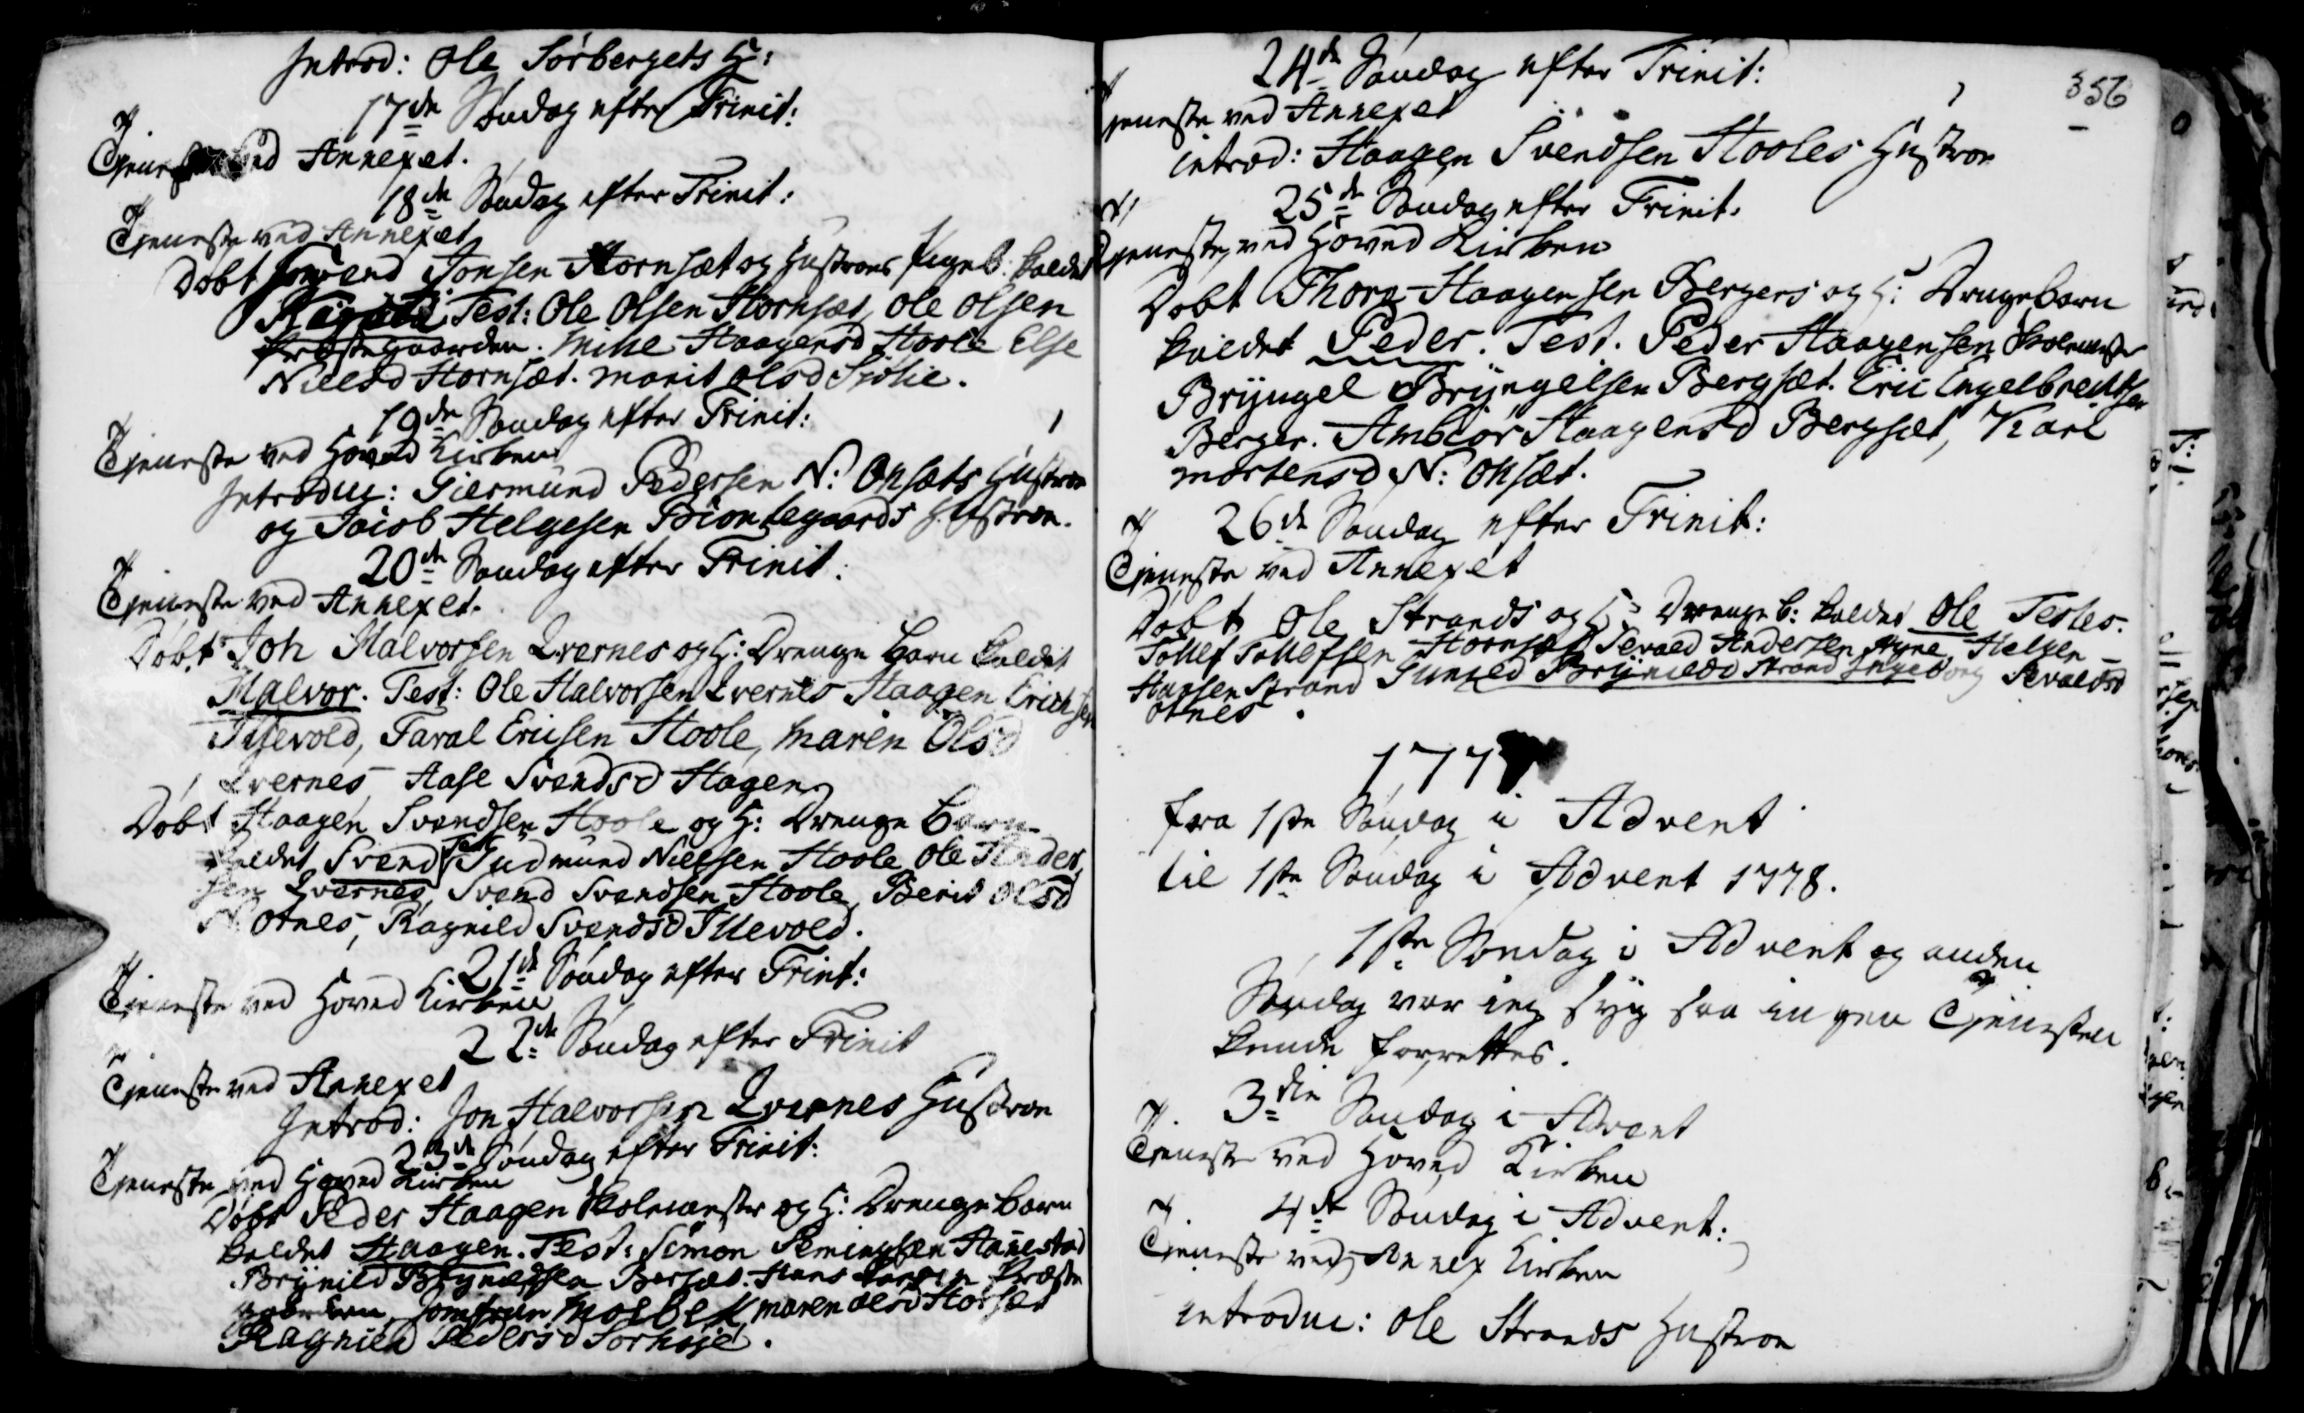 Introd: Ole Sörbergets H:
17de Söndag efter Trinit:
Tjeneste ved Annexet.
18de Söndag efter Trinit:
Tjeneste ved Annexet
Döbt Jonsen Hornsæt og Hustroes Pigeb. kaldet
Test: Ole Olsen Hornsæt, Ole Olsen
Præstegaarden. Mille Haagensd Hoole Else
Nielsd Hornsæt. Marit Olsd Sjölie.
19de Söndag efter Trinit:
Tjeneste ved Hoved Kirken
Introduc: Giermund Pedersen N: Onsæts Hustroe
og Jacob Helgesen Biontegaards Hustroe.
20de Söndag efter Trinit:
Tjeneste ved Annexet.
Döbt Joh Halvorsen Qvernes og H: Drenge Barn kaldet
Halvor. Test: Ole Halvorsen Qvernes Haagen Erichsen
Illevold, Taral Ericsen Hoole, Maren Olsd
Qvernes Aase Svendsd Hagen
Döbt Haagen Svendsen Hoole og H: Drenge Barn
kaldet Svend Test Gudmund Nielsen Hoole Ole Ander
sen Qvernes, Svend Svendsen Hoole, Berit Olsd
N. Otnes, Ragnild Svendsd Illevold.
21de Söndag efter Trinit:
Tjeneste ved Hoved Kirken
22de Söndag efter Trinit
Tjeneste ved Annexet
Introd: Jon Halvorsen Qvernes Hustroe
23de Söndag efter Trinit:
Tjeneste ved Hoved Kirken
Döbt Peder Haagen Skolemester og H: Drengebarn
kaldet Haagen. Test: Simon Hanestad
Brÿnild Brynildsen Bersæt. Hans Præste
gaarden, Jomfrue Moebek Maren Olsd Horsæt
Ragnild Pedersd Sorhoje.
356
24de Söndag efter Trinit:
Tjeneste ved Annexet
introd: Haagen Svendsen Hooles Hustroe
25de Söndag efter Trinit.
Tjeneste ved Hoved Kirken
Döbt Thore Haagensen Bergers og H: Drengebarn
kaldet Peder. Test. Peder Haagensen Skolemester
Brÿngel Brÿngelsen Bergsæt. Eric Engelbrechtsen
Berger. Ambiör Haagensd Bergset, Kari
Mortensd N: Onsæt.
26de Söndag efter Trinit:
Tjeneste ved Annexet
Döbt Ole Strands og H: Drengeb: kaldet Ole Testes.
Tollef Tollefsen Hornsæt Sevald Andersen Helgen
Hansen Strand Gunild Brÿnildsd Strand Ingeborg Sevaldsd
Otnes.
177
fra 1ste Söndag i Advent
til 1ste Söndag i Advent 1778.
1ste Söndag i Advent og anden
Söndag var jeg syg saa ingen Tjenesten
kunde forrettes.
3die Söndag i Advent
Tjeneste ved Hoved Kirken
4de Söndag i Advent:
Tjeneste ved Annex Kirken
introduc: Ole Strands Hustroe